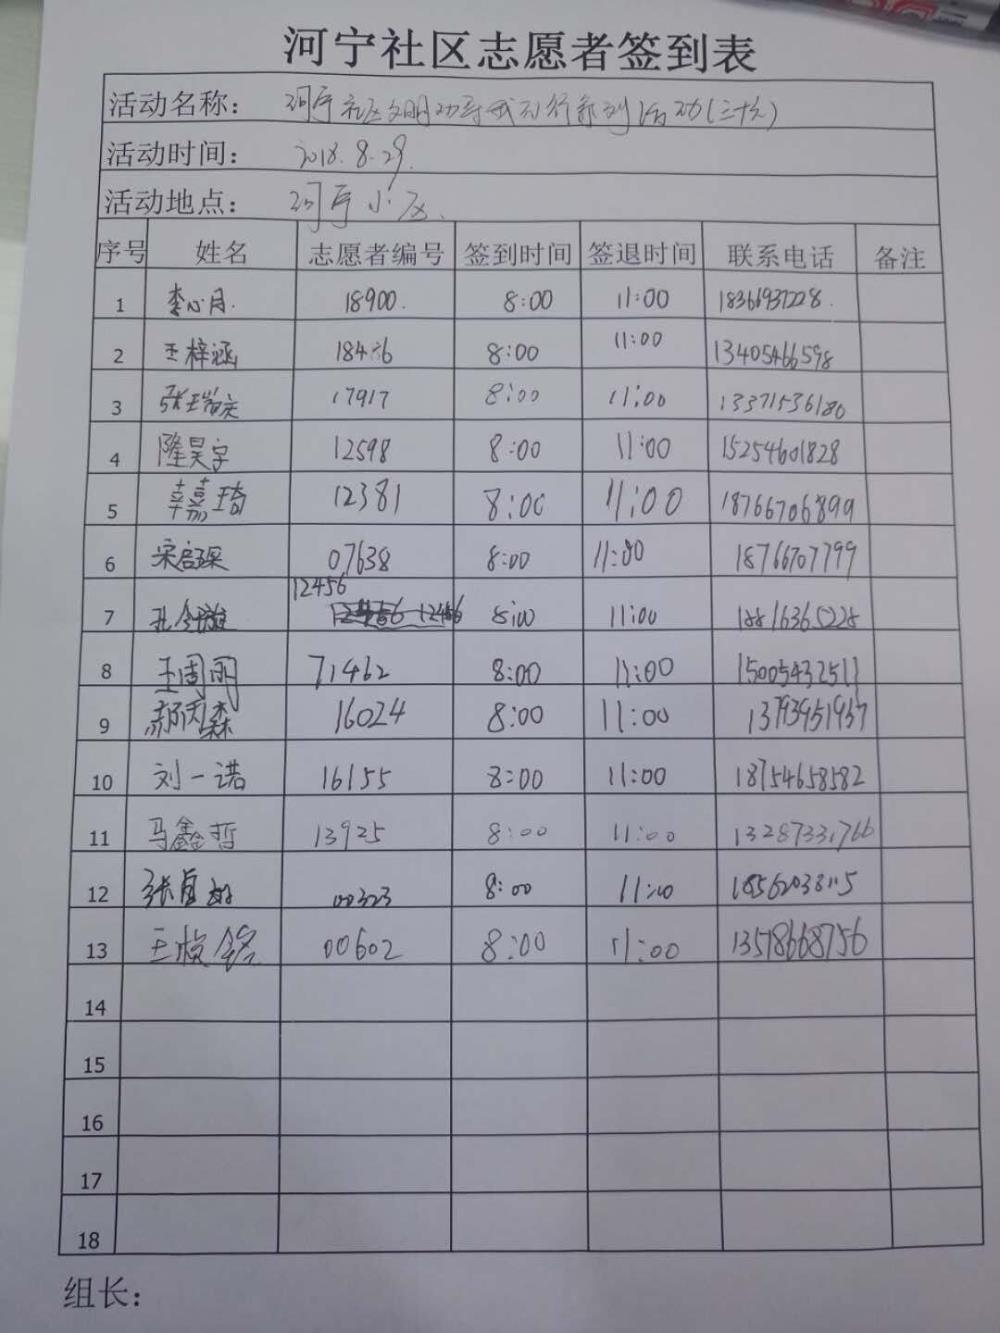 河宁社区志愿者签到表
活动名称： 河宁社区文明劝导我先行系列活动(三十六)
活动时间： 2018.8.29.
活动地点： 河宁小区.
序号 姓名 志愿者编号 签到时间 签退时间 联系电话 备注
1 李心月. 18900. 8:00 11:00 18366937228.
2 王梓涵 184 6 8:00 11:00 13405466598
3 张 17917 8:00 11:00 13371536180
4 隆昊宇 12598 8:00 11:00 15254601828
5 辛嘉琦 12381 8:00 11:00 18766706899
6 宋启琛 07638 8:00 11:00 18766707799
12456
7 孔令 8:00 11:00
8 王周丽 71462 8:00 11:00 15005432511
9 郝丙森 16024 8:00 11:00 13793951937
10 刘一诺 16155 8:00 11:00 18754658582
11 马鑫哲 13925 8:00 11:00 13287331766
12 张 00323 8:00 11:00
13 王 铭 00602 8:00 11:00 13518668756
14
15
16
17
18
组长：